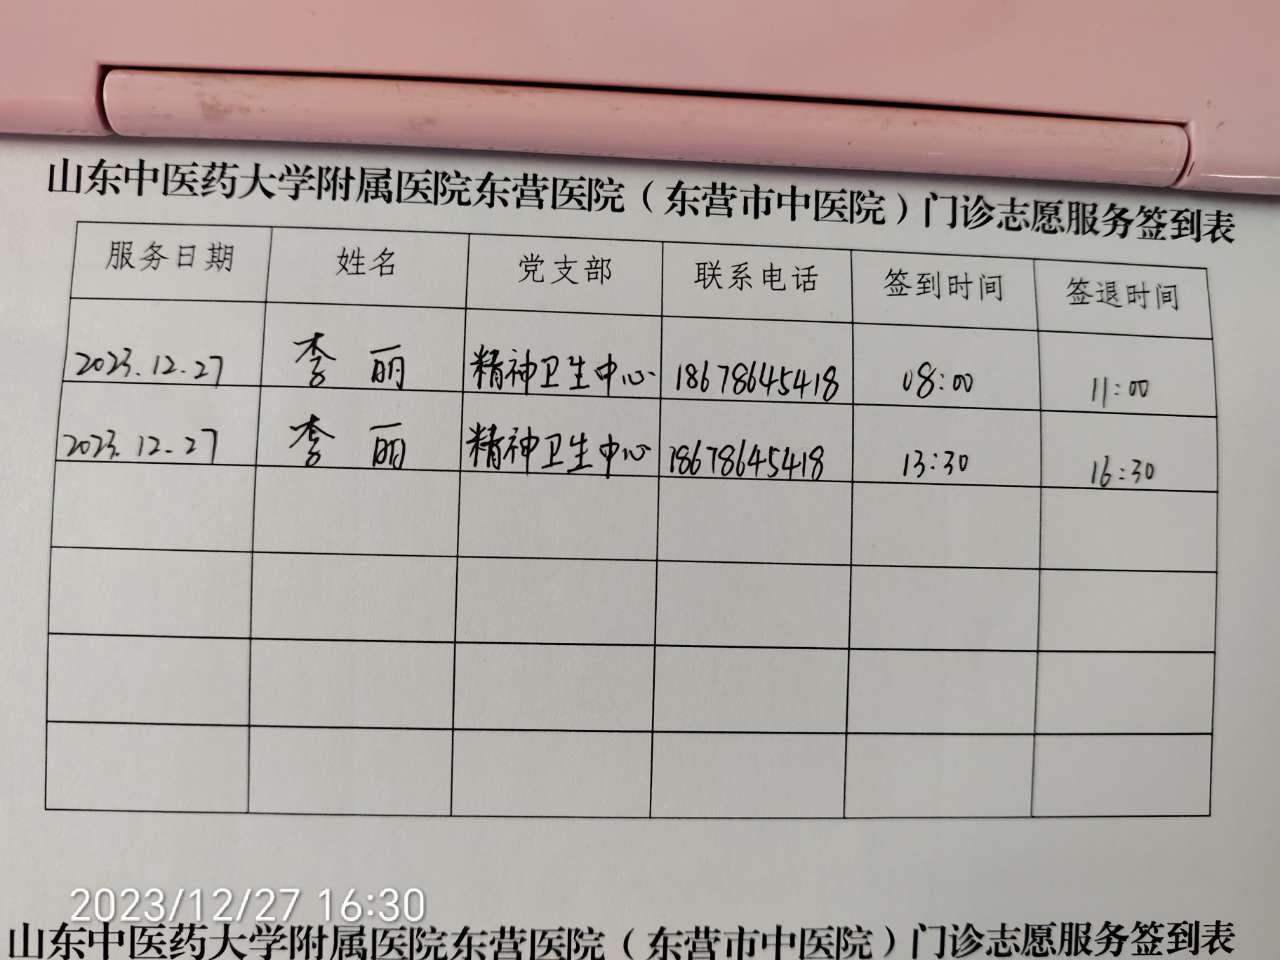 山东中医药大学附属医院东营医院（东营市中医院）门诊志愿服务签到表
服务日期 姓名 党支部 联系电话 签到时间 签退时间
2023.12.27 李丽 精神卫生中心 18678645418 08:00 11:00
2023.12.27 李丽 精神卫生中心 18678645418 13:30 16:30
2023/12/27 16:30
山东中医药大学附属医院东营医院（东营市中医院）门诊志愿服务签到表